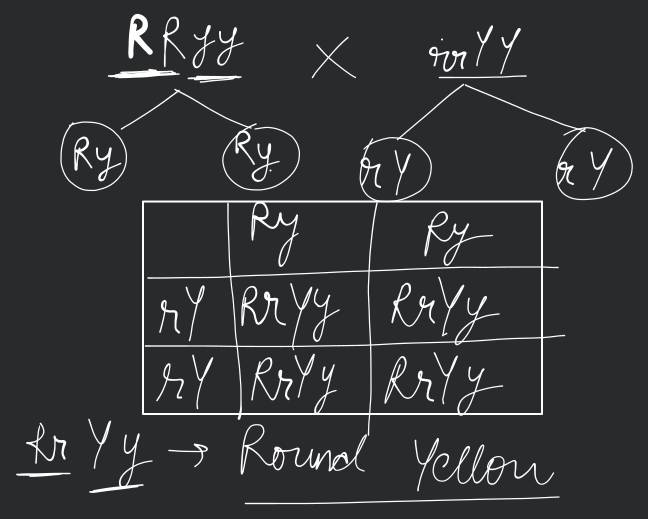 RRyy × rrYY
Ry Ry rY rY
Ry Ry
rY RrYy RrYy
rY RrYy RrYy
Rr Yy → Round Yellow